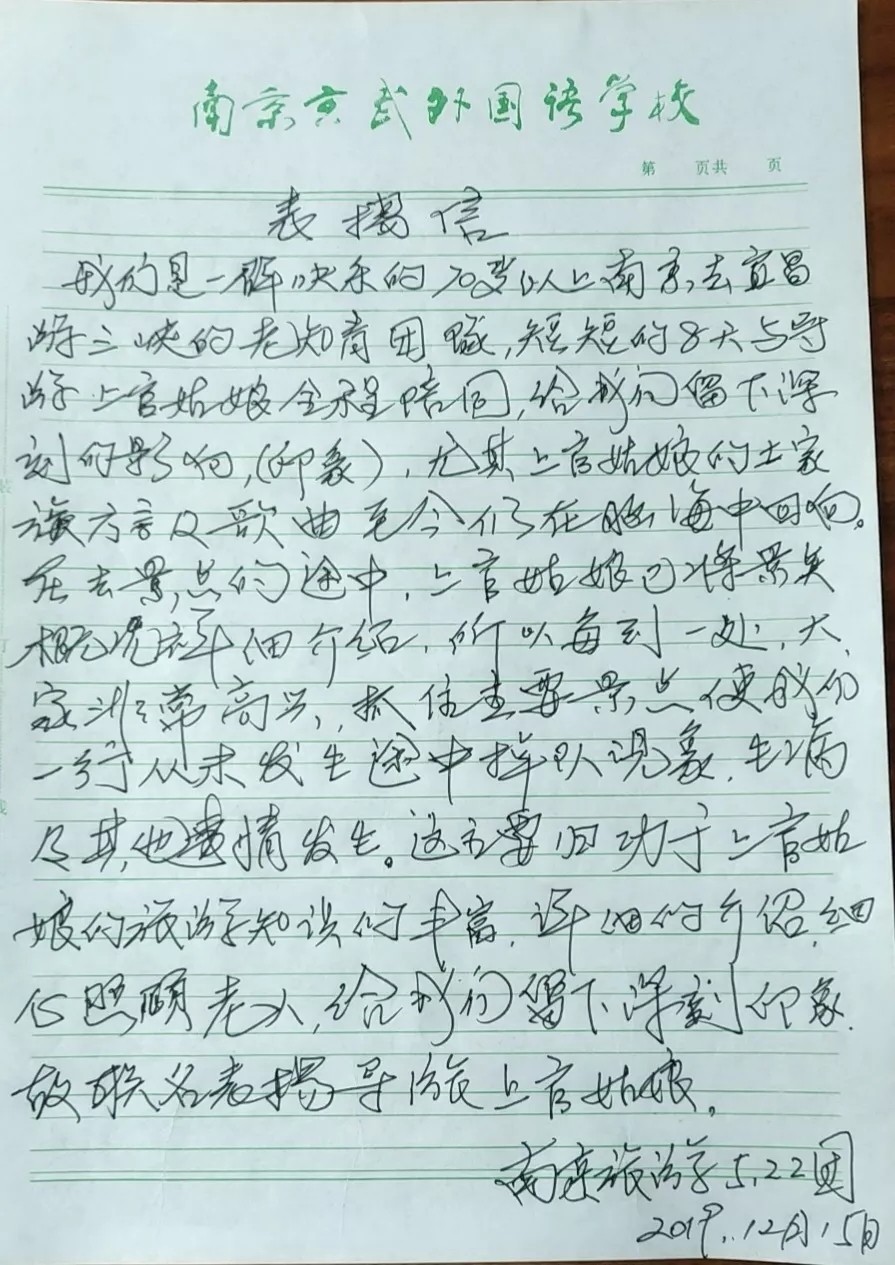 南京京武外国语学校
第 页共 页
表揚信
我们是一群快乐的70岁以上南京去宜昌
游三峡的老知青团队,短短的8天与导
游上官姑娘全程陪同,给我们留下深
刻的影响,(印象),尤其上官姑娘的土家
族方言及歌曲至今仍在脑海中回响。
在去景点的途中,上官姑娘已将景矣
概况详细介绍,所以每到一处,大
家非常高兴,抓住主要景点使我们
一行从未发生途中掉队现象,生病
及其他事情发生。这主要归功于上官姑
娘的旅游知识的丰富,详细的介绍,细
心照顾老人,给我们留下深刻印象.
故联名表揚导旅上官姑娘。
南京旅游5.22团
2019.12月15日